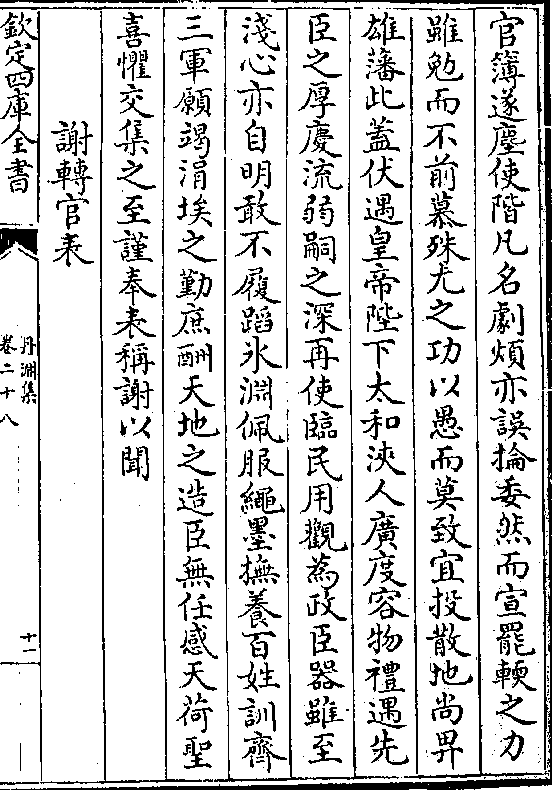 官簿遂塵使階凡名劇煩亦誤掄委然而宣罷輭之力
雖勉而不前慕殊尤之功以愚而莫致宜投散地尚畀
雄藩此蓋伏遇皇帝陛下太和浹人廣度容物禮遇先
臣之厚慶流弱嗣之深再使臨民用觀為政臣器雖至
淺心亦自明敢不履蹈氷淵佩服繩墨撫養百姓訓齊
三軍願竭涓埃之勤庶酬天地之造臣無任感天荷聖
喜懼交集之至謹奉表稱謝以聞
謝轉官表
欽定四庫全書
丹淵集
卷二十八
十一